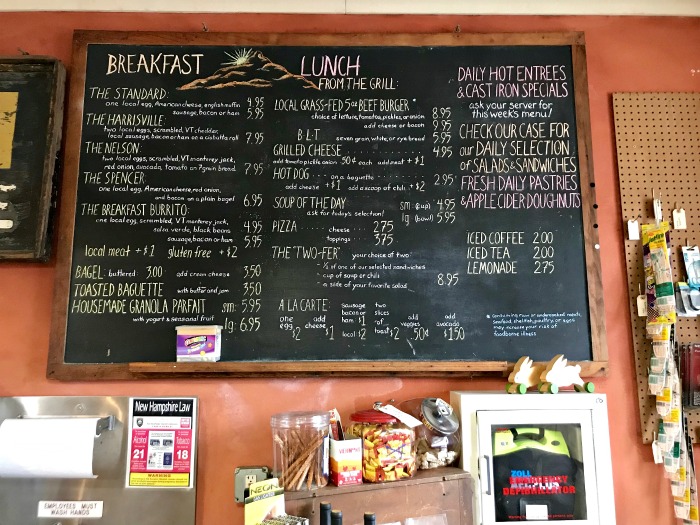 BREAKFAST
THE STANDARD:
one local egg, American cheese, english muffin 4.95
sausage, bacon or ham 5.95
THE HARRISVILLE:
two local eggs, scrambled, VT cheddar,
local sausage, bacon or ham on a ciabatta roll 7.95
THE NELSON:
two local eggs, scrambled, VT monterey jack,
red onion, avocado, tomato on 7grain bread 7.95
THE SPENCER:
one local egg, American cheese, red onion,
and bacon on a plain bagel 6.95
THE BREAKFAST BURRITO:
one local egg, scrambled, VT monterey jack,
salsa verde, black beans 4.95
sausage, bacon or ham 5.95
local meat +$1 gluten free +$2
BAGEL: buttered 3.00 add cream cheese 3.50
TOASTED BAGUETTE with butter and jam 3.50
HOUSEMADE GRANOLA PARFAIT sm: 5.95
with yogurt & seasonal fruit lg: 6.95
LUNCH
FROM THE GRILL:
LOCAL GRASS-FED 5oz BEEF BURGER *
choice of lettuce, tomato, pickles, or onion 8.95
add cheese or bacon 9.95
B·L·T seven grain, white, or rye bread 5.95
GRILLED CHEESE 4.95
add tomato pickle onion .50¢ each add meat +$1
HOT DOG on a baguette 2.95
add cheese +$1 add a scoop of chili +$2
SOUP OF THE DAY sm (cup) 4.95
ask for today's selection! lg (bowl) 5.95
PIZZA cheese 2.75
toppings 3.75
THE "TWO-FER" your choice of two
- ½ of one of our selected sandwiches
- cup of soup or chili
- a side of your favorite salad 8.95
A LA CARTE:
one egg $2
add cheese $1
Sausage bacon or ham $1 local $2
two slices of toast $2
add veggies .50¢
add avocado $1.50
DAILY HOT ENTREES
& CAST IRON SPECIALS
ask your server for
this week's menu!
CHECK OUR CASE FOR
our DAILY SELECTION
of SALADS & SANDWICHES
FRESH DAILY PASTRIES
& APPLE CIDER DOUGHNUTS
ICED COFFEE 2.00
ICED TEA 2.00
LEMONADE 2.75
* Consuming raw or undercooked meats,
seafood, shellfish, poultry, or eggs
may increase your risk of
foodborne illness
New Hampshire Law
Alcohol
21
Tobacco
18
WARNING
EMPLOYEES MUST
WASH HANDS
NEON
ZOLL
DEFIBRILLATOR